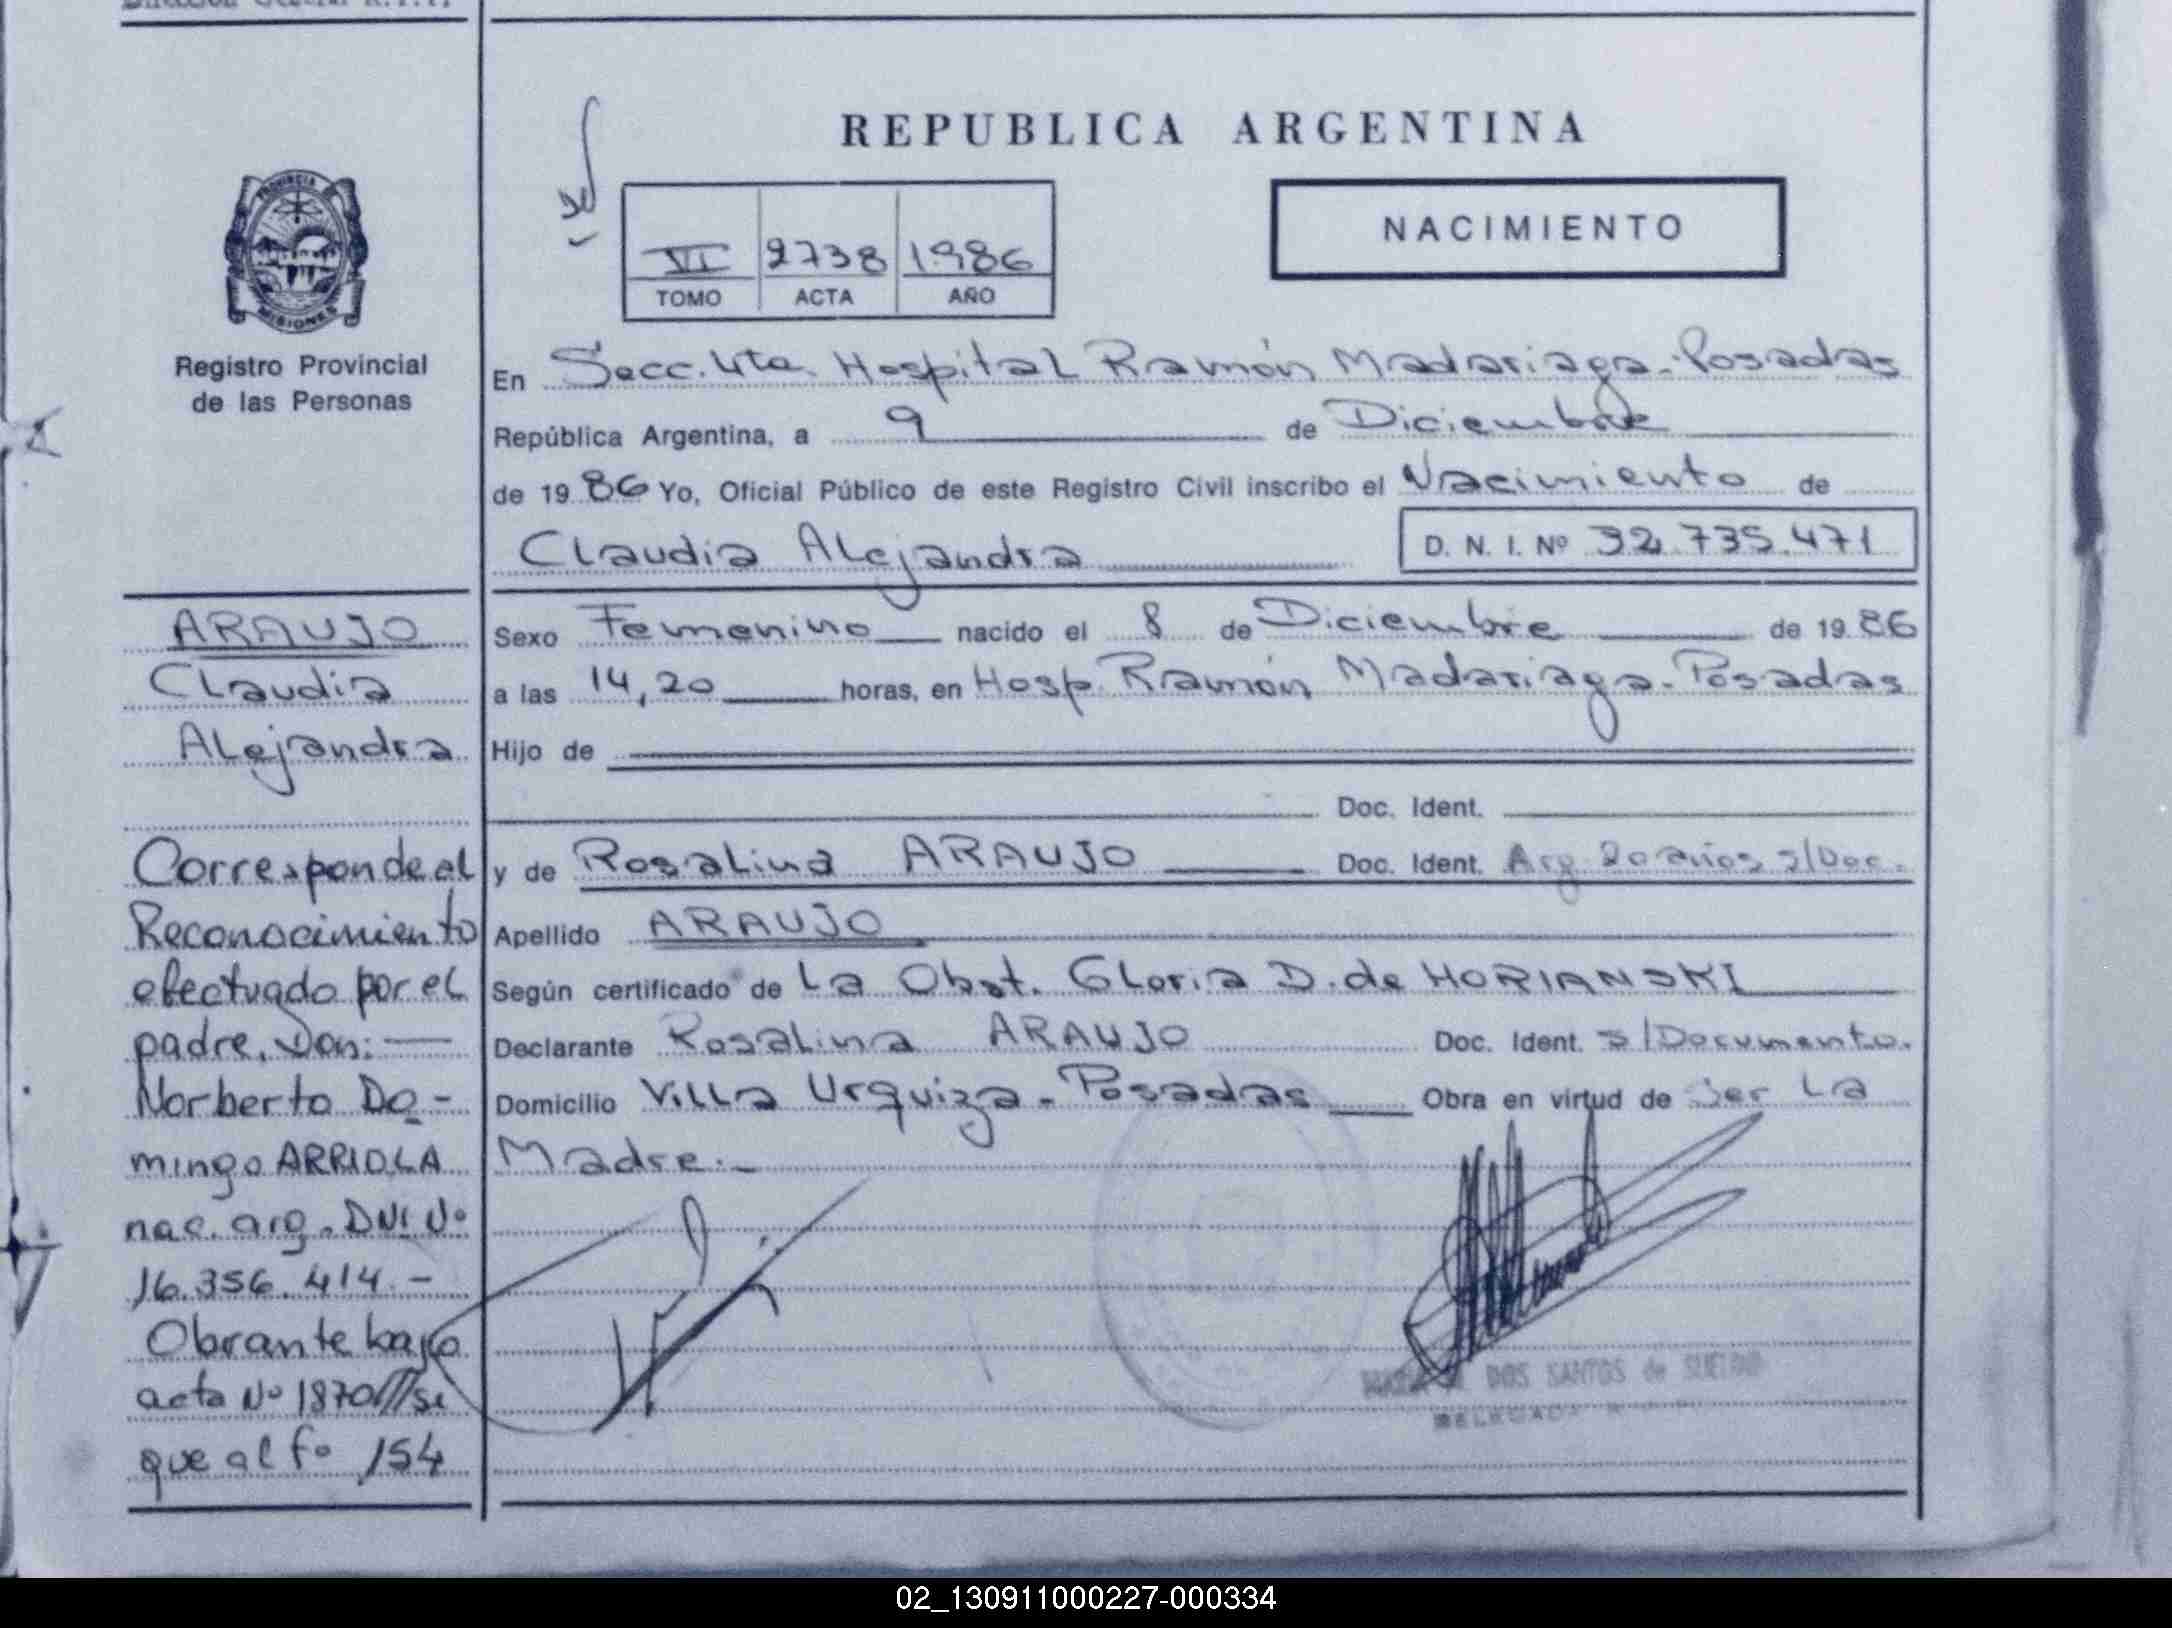 REPUBLICA ARGENTINA
PROVINCIA DE
MISIONES
Registro Provincial
de las Personas
VI 2738 1986
TOMO ACTA AÑO
NACIMIENTO
En Secc. 4ta. Hospital Ramón Madariaga - Posadas
República Argentina, a 9 de Diciembre
de 1986 Yo, Oficial Público de este Registro Civil inscribo el Nacimiento de
Claudia Alejandra D. N. I. Nº 32.735.471
Sexo Femenino nacido el 8 de Diciembre de 1986
a las 14,20 horas, en Hosp. Ramón Madariaga - Posadas
Hijo de
Doc. Ident.
y de Rosalina ARAUJO Doc. Ident. Arg. 20 años s/Doc.
Apellido ARAUJO
Según certificado de La Obst. Gloria D. de HORIANSKI
Declarante Rosalina ARAUJO Doc. Ident. s/Documento.
Domicilio Villa Urquiza - Posadas Obra en virtud de Ser La
Madre.-
DOS SANTOS de
ARAUJO
Claudia
Alejandra
Corresponde al
Reconocimiento
efectuado por el
padre, Don: —
Norberto Do-
mingo ARRIOLA
nac. arg. DNI Nº
16.356.414.-
Obrante bajo
acta Nº 1870
que al fº 154
02_130911000227-000334